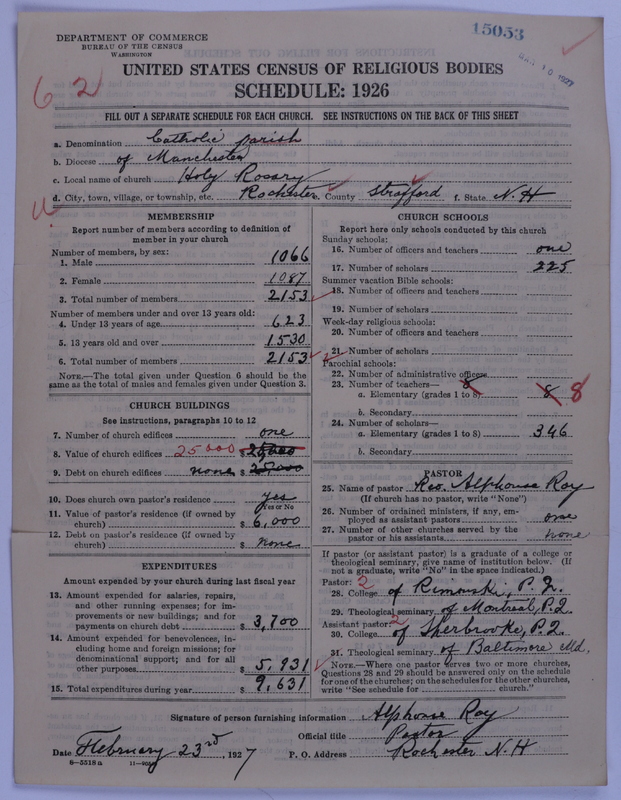 DEPARTMENT OF COMMERCE
BUREAU OF THE CENSUS
WASHINGTON
15053
10 1927
62
UNITED STATES CENSUS OF RELIGIOUS BODIES
SCHEDULE: 1926
FILL OUT A SEPARATE SCHEDULE FOR EACH CHURCH. SEE INSTRUCTIONS ON THE BACK OF THIS SHEET
a. Denomination Catholic parish
b. Diocese of Manchester
c. Local name of church Holy Rosary
d. City, town, village, or township, etc. Rochester e. County Strafford f. State N.H
MEMBERSHIP
Report number of members according to definition of
member in your church
Number of members, by sex:
1. Male 1066
2. Female 1087
3. Total number of members 2153
Number of members under and over 13 years old:
4. Under 13 years of age 623
5. 13 years old and over 1530
6. Total number of members 2153
NOTE.—The total given under Question 6 should be
same as the total of males and females given under Question 3.
CHURCH BUILDINGS
See instructions, paragraphs 10 to 12
7. Number of church edifices one
8. Value of church edifices 25000 $ 25,000
9. Debt on church edifices none $ 25,000
10. Does church own pastor's residence yes
Yes or No
11. Value of pastor's residence (if owned by
church) $ 6,000
12. Debt on pastor's residence (if owned by
church) $ none
EXPENDITURES
Amount expended by your church during last fiscal year
13. Amount expended for salaries, repairs,
and other running expenses; for im-
provements or new buildings; and for
payments on church debt $ 3,700
14. Amount expended for benevolences, in-
cluding home and foreign missions; for
denominational support; and for all
other purposes $ 5,931
15. Total expenditures during year $ 9,631
CHURCH SCHOOLS
Report here only schools conducted by this church
Sunday schools:
16. Number of officers and teachers one
17. Number of scholars 225
Summer vacation Bible schools:
18. Number of officers and teachers
19. Number of scholars
Week-day religious schools:
20. Number of officers and teachers
21. Number of scholars
Parochial schools:
22. Number of administrative officers
23. Number of teachers— 8
a. Elementary (grades 1 to 8) 8 8
b. Secondary
24. Number of scholars—
a. Elementary (grades 1 to 8) 346
b. Secondary
PASTOR
25. Name of pastor Rev. Alphonse Roy
(If church has no pastor, write "None")
26. Number of ordained ministers, if any, em-
ployed as assistant pastors one
27. Number of other churches served by the
pastor or his assistants none
If pastor (or assistant pastor) is a graduate of a college or
theological seminary, give name of institution below. (If
not a graduate, write "No" in the space indicated.)
Pastor: 2
28. College of Rimouski, P.Q.
29. Theological seminary of Montreal, P.Q.
Assistant pastor: 2
30. College of Sherbrooke, P.Q.
31. Theological seminary of Baltimore Md.
NOTE.—Where one pastor serves two or more churches,
Questions 28 and 29 should be answered only on the schedule
for one of the churches; on the schedules for the other churches,
write "See schedule for church."
Signature of person furnishing information Alphonse Roy
Official title Pastor
Date February 23rd, 1927 P. O. Address Rochester N.H
8—5518a